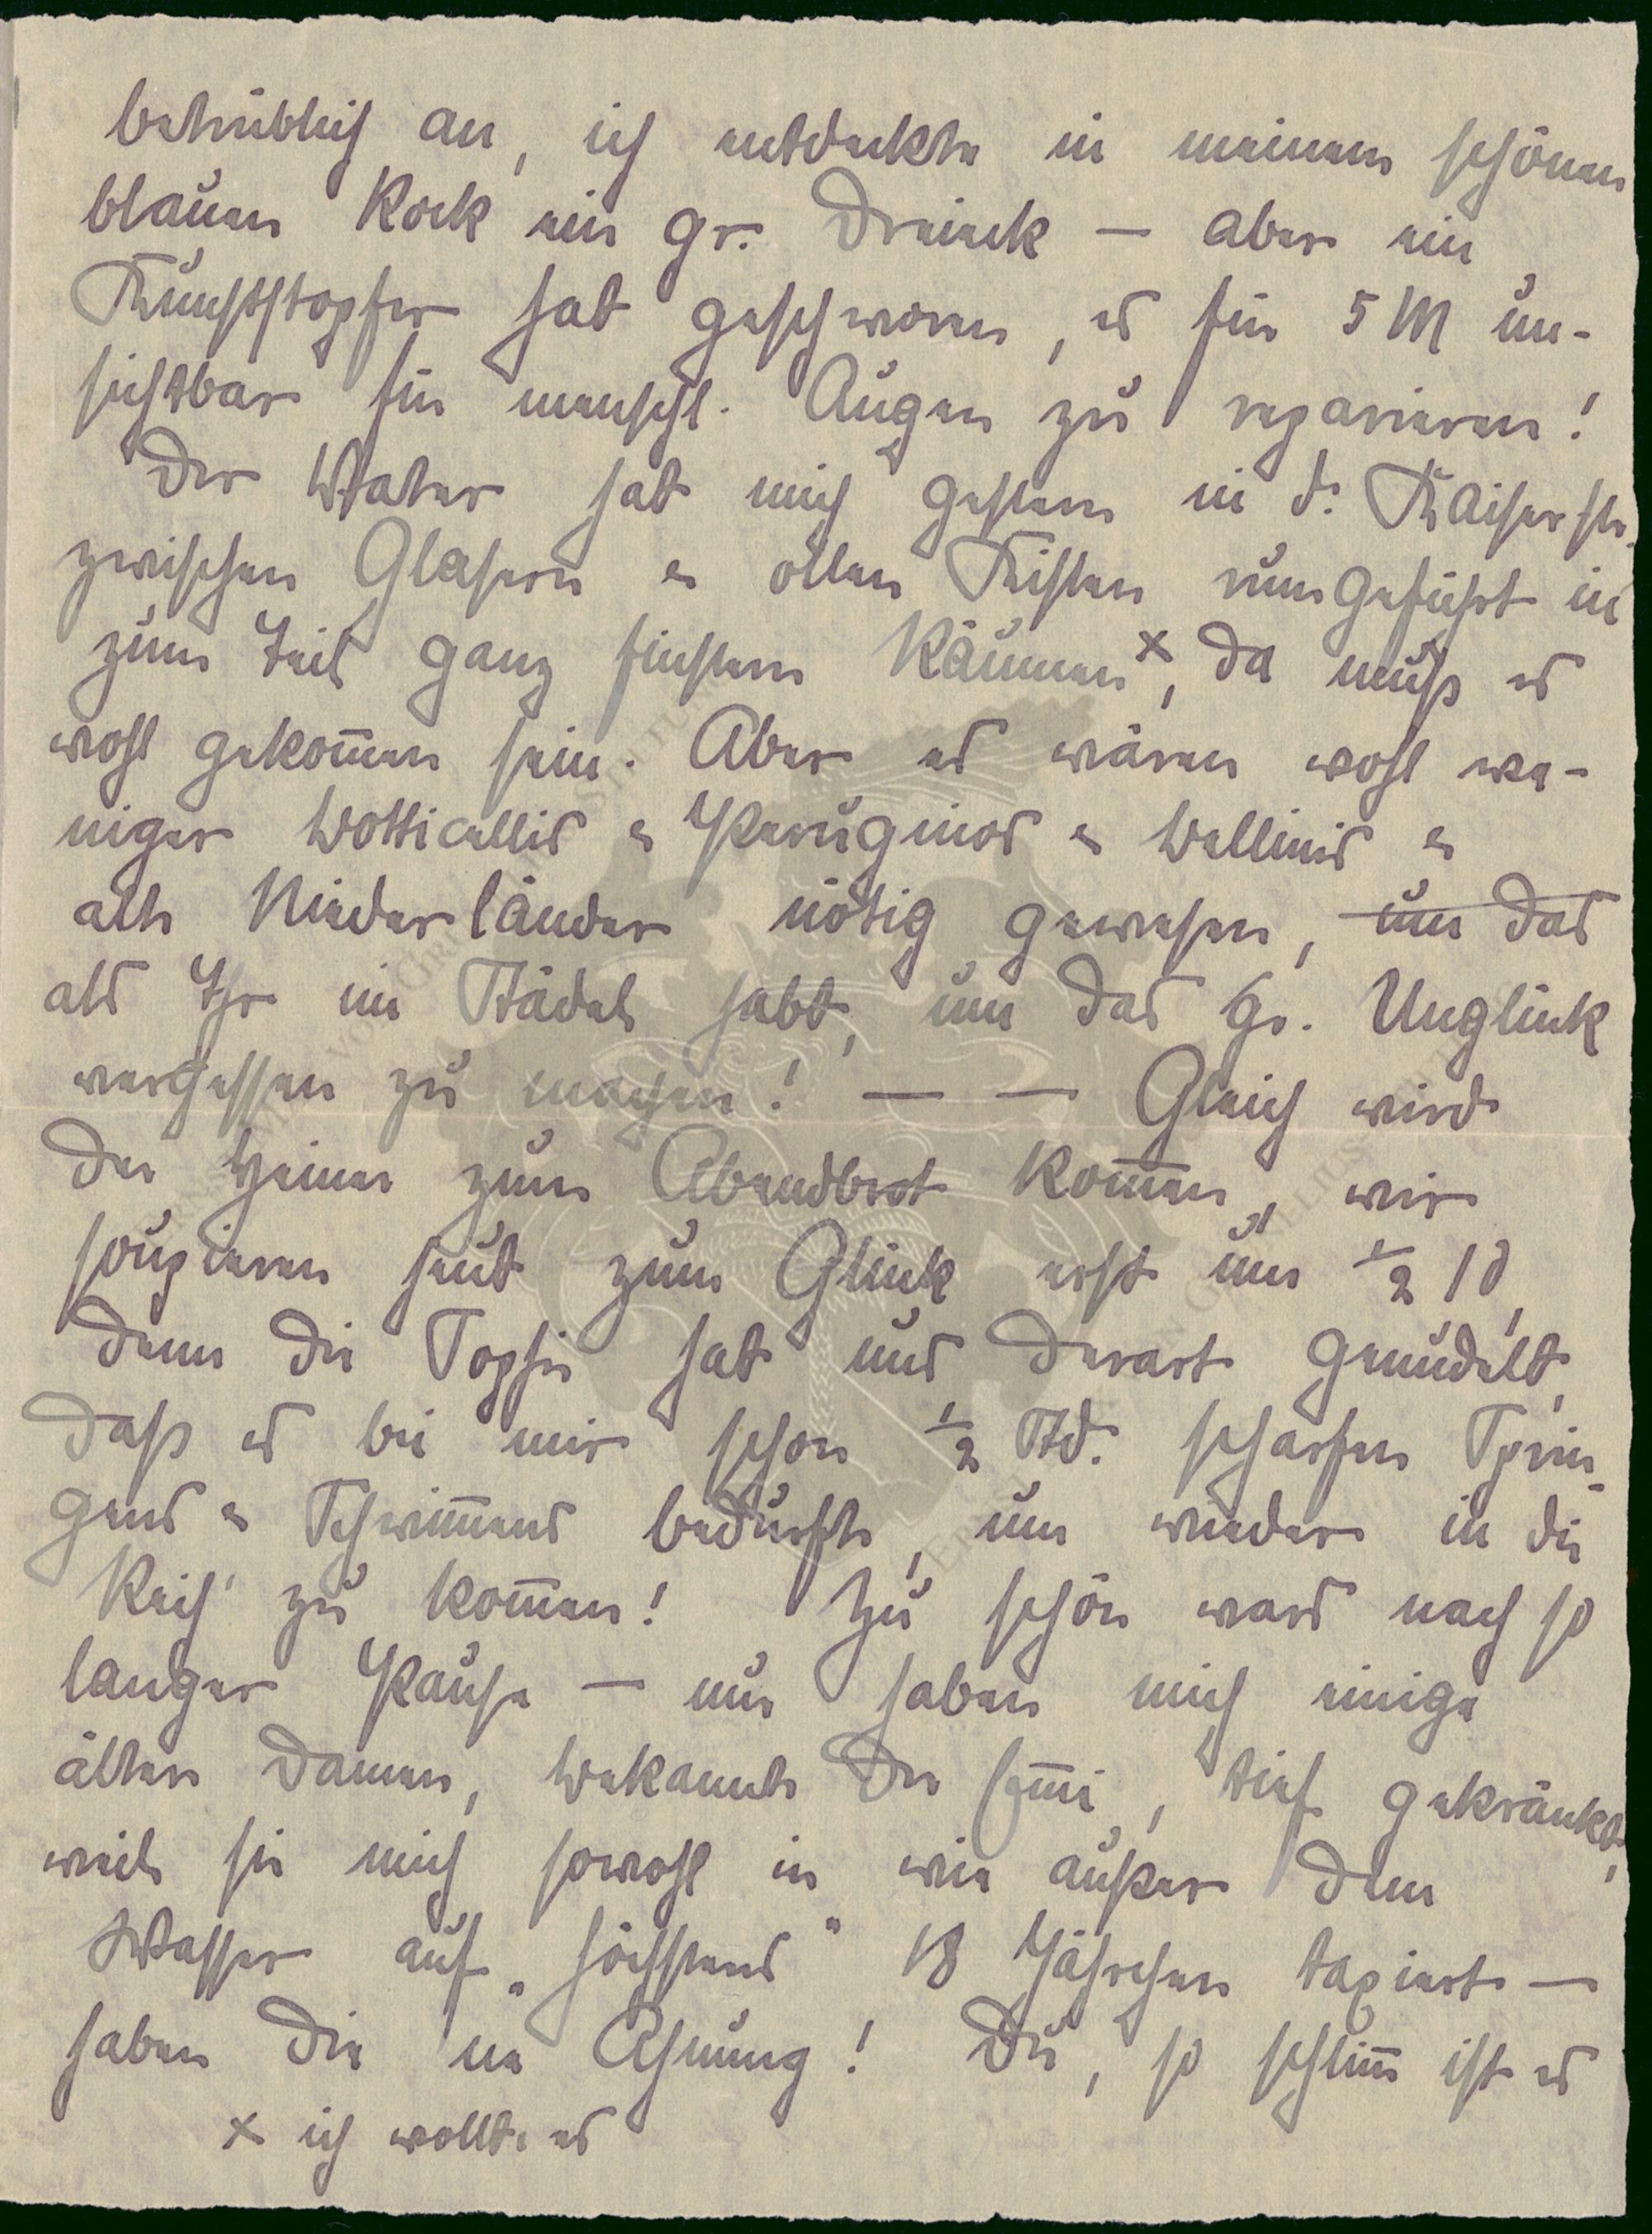 betrüblich an, ich entdeckte in meinem schönen
blauen Rock ein gr. Dreieck — aber ein
Kunststopfer hat geschworen, es für 5 M un-
sichtbar für menschl. Augen zu reparieren!
Der Vater hat mich gestern in d. Kaiserstr.
zwischen Gläsern & ollen Kisten rumgeführt in
zum Teil ganz finstern Räumen ×, da muß es
wohl gekom̅en sein. Aber es wären wohl we-
niger Botticellis & Peruginos & Bellinis &
alte Niederländer nötig gewesen, um das
als Ihr im Städel habt, um das gr. Unglück
vergessen zu machen! — — Gleich wird
der Heiner zum Abendbrot kom̅en, wir
soupieren heut zum Glück erst um ½ 10,
denn die Sophie hat uns derart genudelt,
daß es bei mir schon ½ Std. scharfen Sprin-
gens & Schwim̅ens bedurfte, um wieder in die
Reih' zu kom̅en! Zu schön wars nach so
langer Pause — nur haben mich einige
ältere Damen, Bekannte der, tief gekränkt,
weil sie mich sowohl in wie außer dem
Wasser auf „höchstens" 18 Jährchen taxierte —
haben die ne Ahnung! Du, so schlim̅ ist es
× ich wollte es